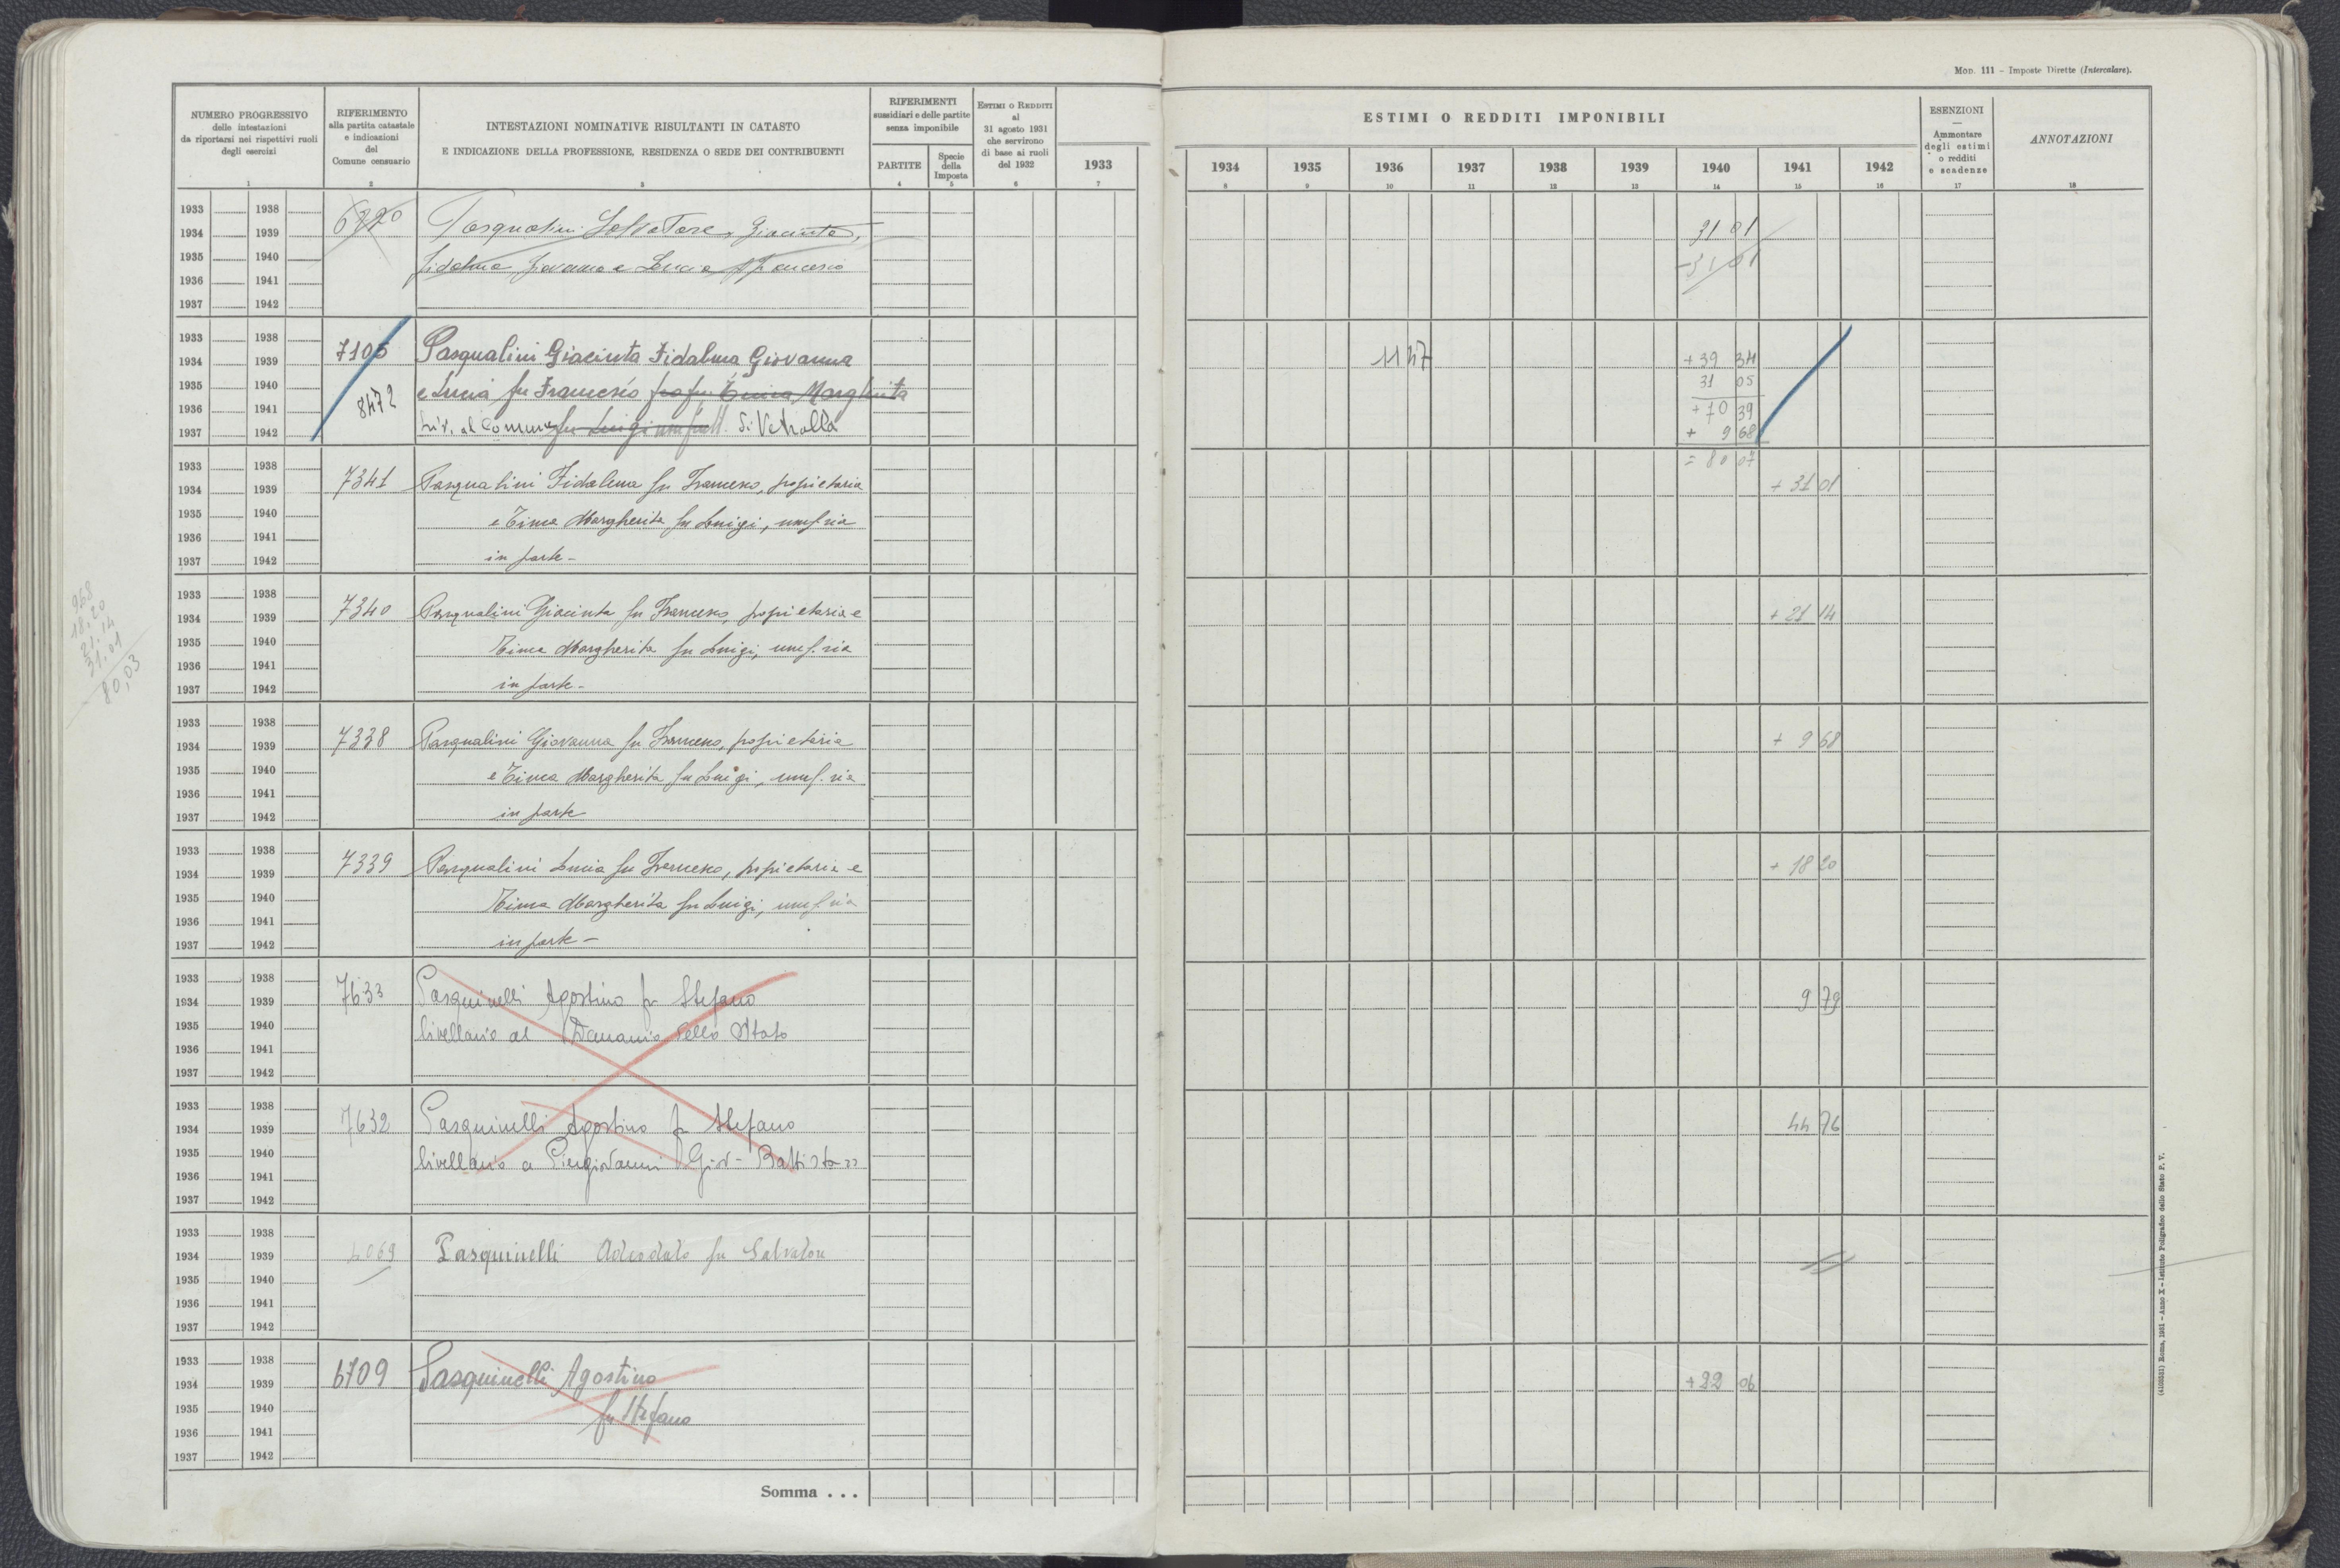 Mod. 111 - Imposte Dirette (Intercalare).
NUMERO PROGRESSIVO
delle intestazioni
da riportarsi nei rispettivi ruoli
degli esercizi
1
RIFERIMENTO
alla partita catastale
e indicazioni
del
Comune censuario
2
INTESTAZIONI NOMINATIVE RISULTANTI IN CATASTO
E INDICAZIONE DELLA PROFESSIONE, RESIDENZA O SEDE DEI CONTRIBUENTI
3
RIFERIMENTI
sussidiari e delle partite
senza imponibile
PARTITE
4
Specie
della
Imposta
5
ESTIMI O REDDITI
al
31 agosto 1931
che servirono
di base ai ruoli
del 1932
6
1933
7
ESTIMI O REDDITI IMPONIBILI
1934 1935 1936 1937 1938 1939 1940 1941 1942
8 9 10 11 12 13 14 15 16
ESENZIONI
—
Ammontare
degli estimi
o redditi
e scadenze
17
ANNOTAZIONI
18
1933 1938
1934 1939
1935 1940
1936 1941
1937 1942
Pasqualini Salvatore, Giacinta,
Fidalma Giovanna e Lucia fu Francesco
31 01
- 31 01
1933 1938
1934 1939
1935 1940
1936 1941
1937 1942
7105
8472
Pasqualini Giacinta Fidalma Giovanna
e Lucia fu Francesco Margherita
Liv. al Comune fu Luigi di Vetralla
11 47
+ 39 34
31 05
+ 70 39
+ 9 68
= 80 07
1933 1938
1934 1939
1935 1940
1936 1941
1937 1942
7341
Pasqualini Fidalma fu Francesco, proprietaria
e Tima Margherita fu Luigi, usuf.ria
in parte -
+ 31 01
1933 1938
1934 1939
1935 1940
1936 1941
1937 1942
7340
Pasqualini Giacinta fu Francesco, proprietaria e
Tima Margherita fu Luigi, usuf.ria
in parte -
+ 21 14
968
18,20
21,14
31,01
80,03
1933 1938
1934 1939
1935 1940
1936 1941
1937 1942
7338
Pasqualini Giovanna fu Francesco, proprietaria
e Tima Margherita fu Luigi, usuf.ria
in parte
+ 9 68
1933 1938
1934 1939
1935 1940
1936 1941
1937 1942
7339
Pasqualini Lucia fu Francesco, proprietaria e
Tima Margherita fu Luigi, usuf.ria
in parte -
+ 18 20
1933 1938
1934 1939
1935 1940
1936 1941
1937 1942
7633
Pasquinelli Agostino fu Stefano
livellario al Demanio dello Stato
9 79
1933 1938
1934 1939
1935 1940
1936 1941
1937 1942
7632
Pasquinelli Agostino fu Stefano
livellario a Piergiovanni Giov- Battista
44 76
1933 1938
1934 1939
1935 1940
1936 1941
1937 1942
4069
Pasquinelli Adeodato fu Salvatore
1933 1938
1934 1939
1935 1940
1936 1941
1937 1942
6709
Pasquinelli Agostino
fu Stefano
+ 22 06
Somma . . .
(4100531) Roma, 1931 - Anno X - Istituto Poligrafico dello Stato P. V.